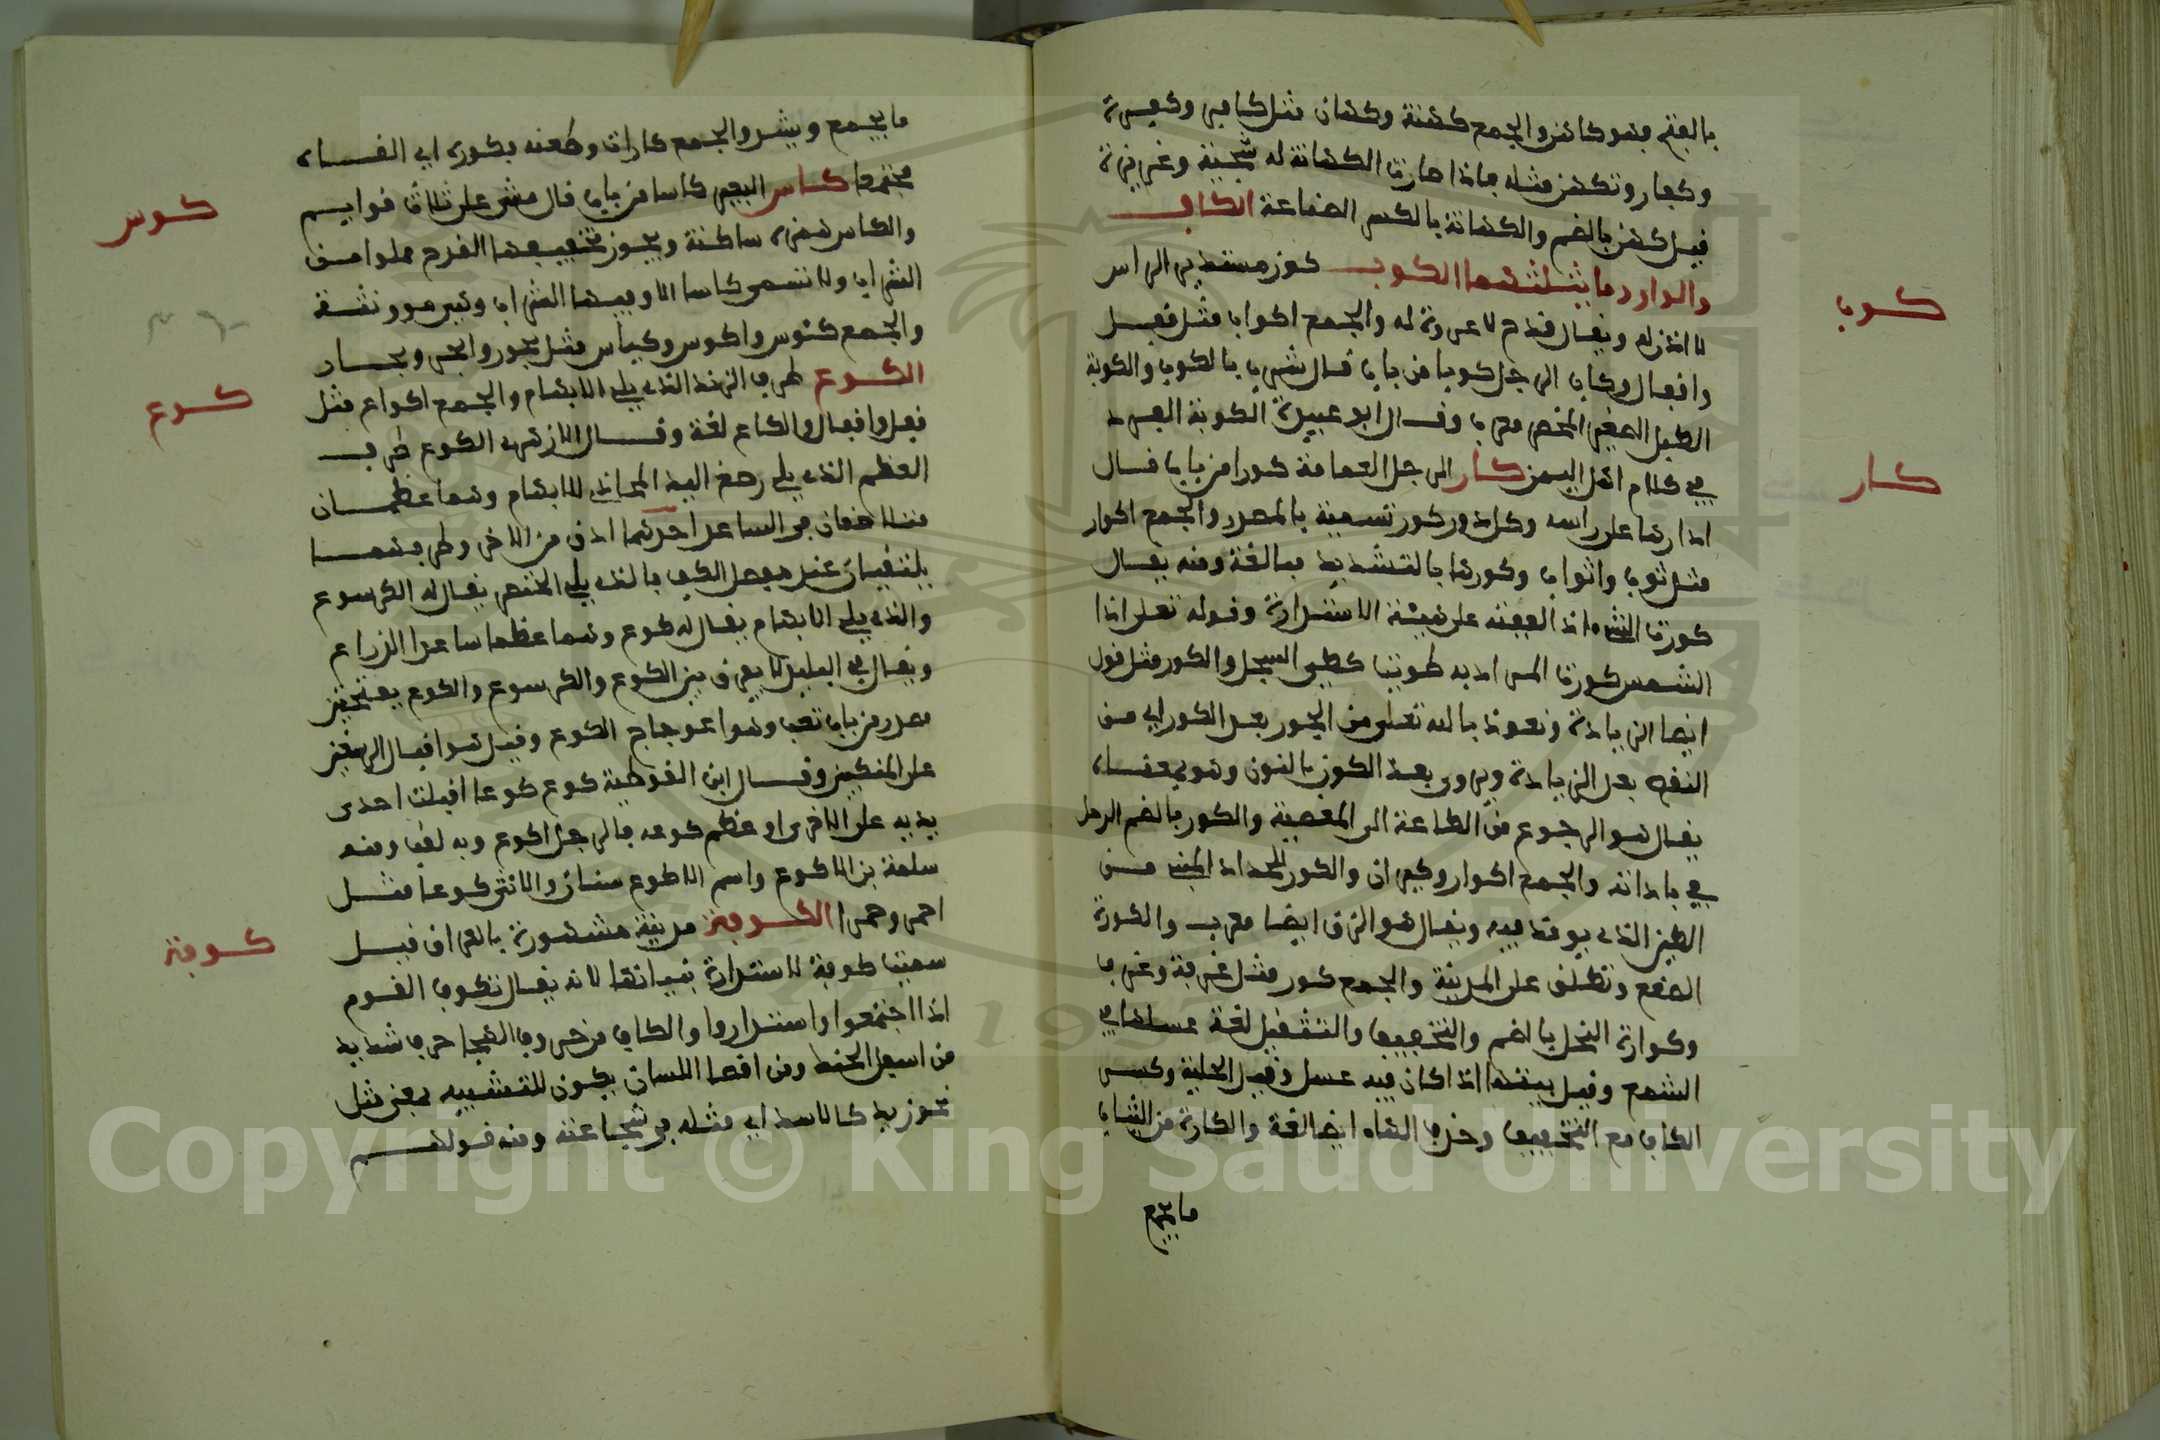 بالفتح فهو كاهن والجمع كهنة وكهان مثل كافر وكفرة
وكفار وتكهن مثله فاذا صارت الكهانة له طبيعة وغريزة
قيل كهن بالضم والكهانة بالكسر الصناعة الكاف
والواو وما يثلثهما الكوب كوز مستدير الراس
لا اذن له ويقال قدح لا عروة له والجمع اكواب مثل قفل
واقفال وكاب الرجل كوبا من باب قال شرب بالكوب والكوبة
الطبل الصغير المخصر معرب وقال ابو عبيدة الكوبة النرد
في كلام اهل اليمن كار الرجل العمامة كورا من باب قال
ادارها على راسه وكل دور كور تسمية بالمصدر والجمع اكوار
مثل ثوب واثواب وكورها بالتشديد مبالغة ومنه يقال
كورت الشيء اذا لففته على هيئة الاستدارة وقوله تعلى اذا
الشمس كورت المراد به طويت كطي السجل والكور مثل قول
ايضا الزيادة ونعوذ بالله تعلى من الحور بعد الكور اي من
النقص بعد الزيادة ويروى بعد الكون بالنون وهو بمعناه
يقال هو الرجوع من الطاعة الى المعصية والكور بالضم الرحل
في باداته والجمع اكوار وكيران والكور للحداد المبني من
الطين الذي يوقد فيه ويقال هو الزق ايضا معرب والكورة
الصقع وتطلق على المدينة والجمع كور مثل غرفة وغرف
وكوارة النحل بالضم والتخفيف والتثقيل لغة عسلها في
الشمع وقيل بيتها اذا كان فيه عسل وقيل الخلية وكسر
الكاف مع التخفيف وحذف الهاء ايضا لغة والكارة من الثياب
ما يجمع
كوب
كار
ما يجمع ويشد والجمع كارات وطعنه فكوره اي القاه
مجتمعا كاس البعير كاسا من باب قال مشى على ثلاث قوايم
والكاس بهمزة ساكنة ويجوز تخفيفها القدح مملوا من
الشراب ولا تسمى كاسا الا وفيها الشراب وهي مؤنثة
والجمع كئوس واكوس وكياس مثل بحور وابحر وبحار
الكوع طرف الزند الذي يلي الابهام والجمع اكواع مثل
قفل واقفال والكاع لغة وقال الازهري الكوع طرف
العظم الذي يلي رصغ اليد المحاذي للابهام وهما عظمان
متلاصقان في الساعد احدهما ادق من الاخر وطرفهما
يلتقيان عند مفصل الكف فالذي يلي الخنصر يقال له الكرسوع
والذي يلي الابهام يقال له كوع وهما عظما ساعد الذراع
ويقال في البليد لا يعرف بين الكوع والكرسوع والكوع بفتحتين
مصدر من باب تعب وهو اعوجاج الكوع وقيل هو اقبال الرصغين
على المنكبين وقال ابن القوطية كوع كوعا اقبلت احدى
يديه على الاخرى او عظم كوعه فالرجل اكوع وبه لقب ومنه
سلمة بن الاكوع واسم الاكوع سنان والانثى كوعا مثل
احمر وحمرا الكوفة مدينة مشهورة بالعراق قيل
سميت كوفة لاستدارة بنيانها لانه يقال تكوف القوم
اذا اجتمعوا واستداروا والكاف من حروف الهجا حرف شديد
من اسفل الحنك ومن اقصا اللسان يكون للتشبيه بمعنى مثل
نحو زيد كالاسد اي مثله في شجاعته ومنه قولهم
كوس
كوع
كوفة
Copyright © King Saud University